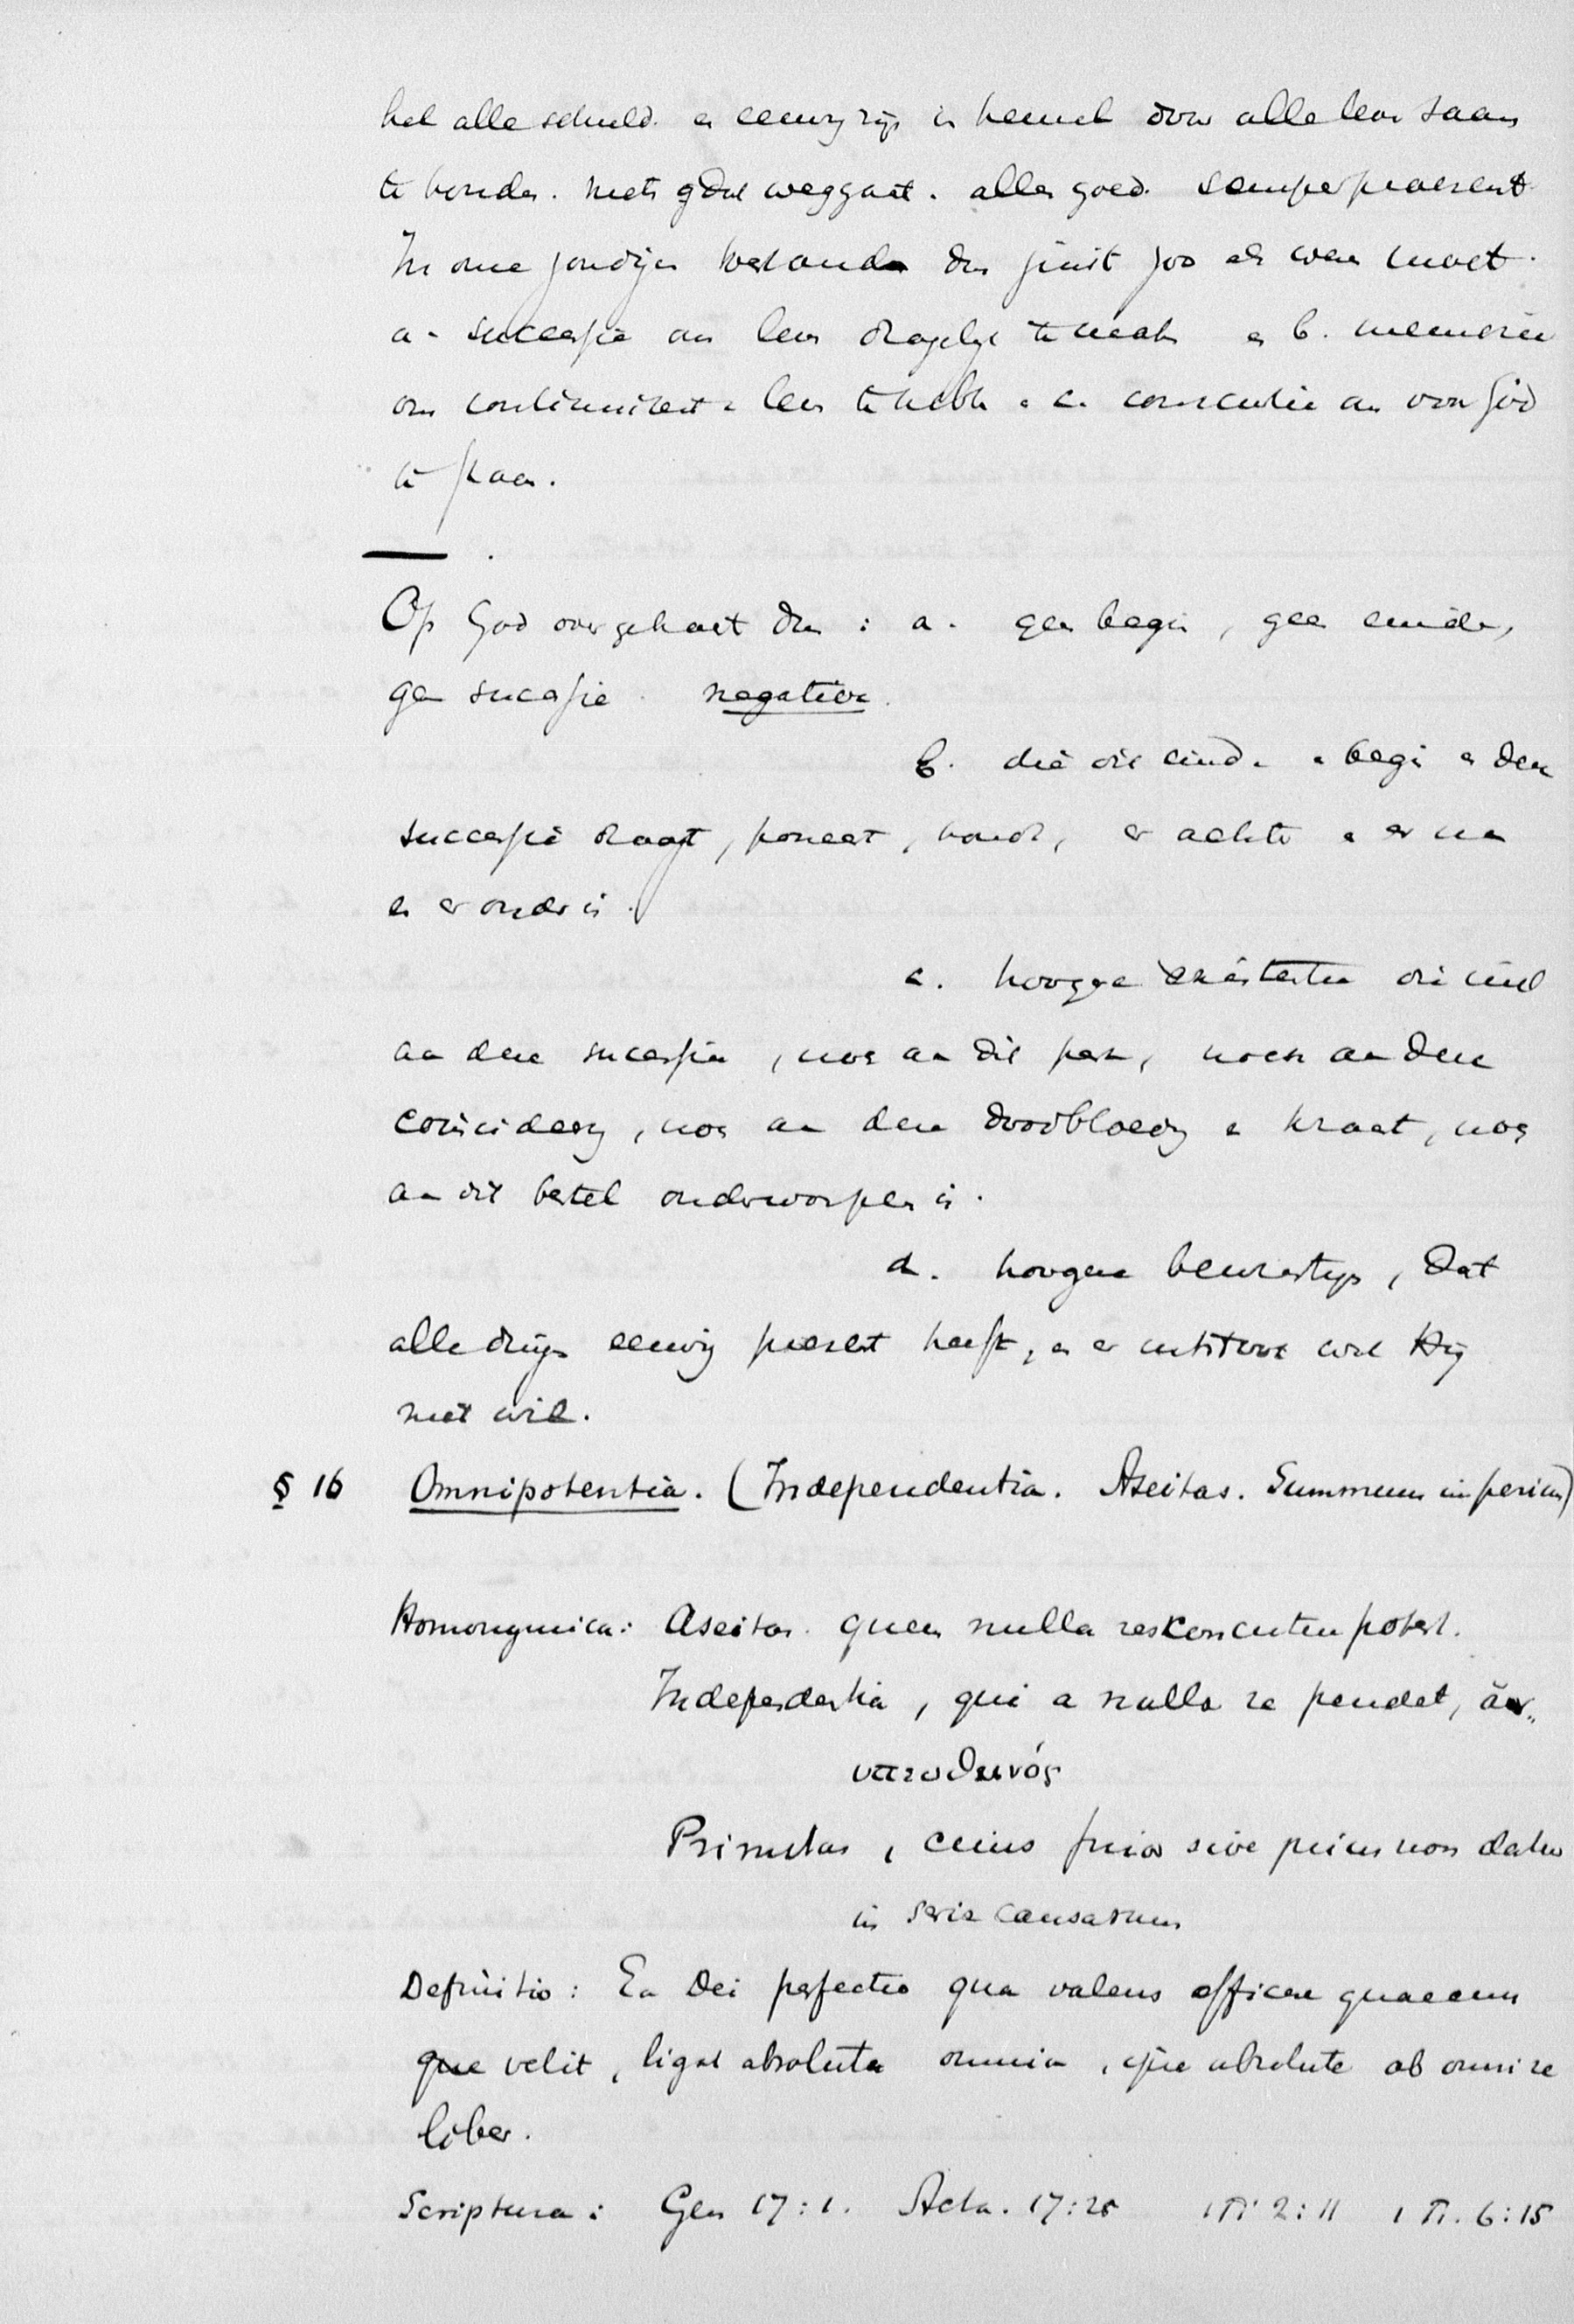 hel alle schuld. en eeuwig zijn in hemel door alle leven saam
te houden. niets weggaat. alles goed. semper praesent.
In onze zondigen toestand dus juist zoo als wezen moet.
a. successie om leven dragelijk te maken en b. memorie
om continuiteit leven te hebben c. conscientie om voor God
te staan.
Op God overgebracht dus : a. geen begin, geen einde,
geen sucessie. negative.
b. die dit einde begin en deze
successie draagt, poneert, houdt, er achter er na
en er onder is.
c. hoogere existentie die niet
aan deze sucessie, noch aan dit , noch aan deze
coïncideering, noch aan deze doodbloeding kracht, noch
aan dit bestel onderworpen is.
d. hoogere bewustzijn, Dat
alle dingen eeuwig present heeft, en er wat Hij
niet wil.
§ 16 Omnipotentia. (Independentia. Aseitas. Summum imperium)
Homonymica: Aseitas. quem nulla res concutere potest.
Independentia, qui a nulla re pendet, ἀν..
υπευθυνός
Primitas, cuius prior sive prius non datur
in serie causarum
Definitio: Ea Dei perfectio qua valens efficere quaecun
que velit, ligat absolute omnia, ipse absolute ab omni re
liber.
Scriptura: Gen 17:1. Acta. 17:25 1 Ti. 2:11 1 Ti. 6:15